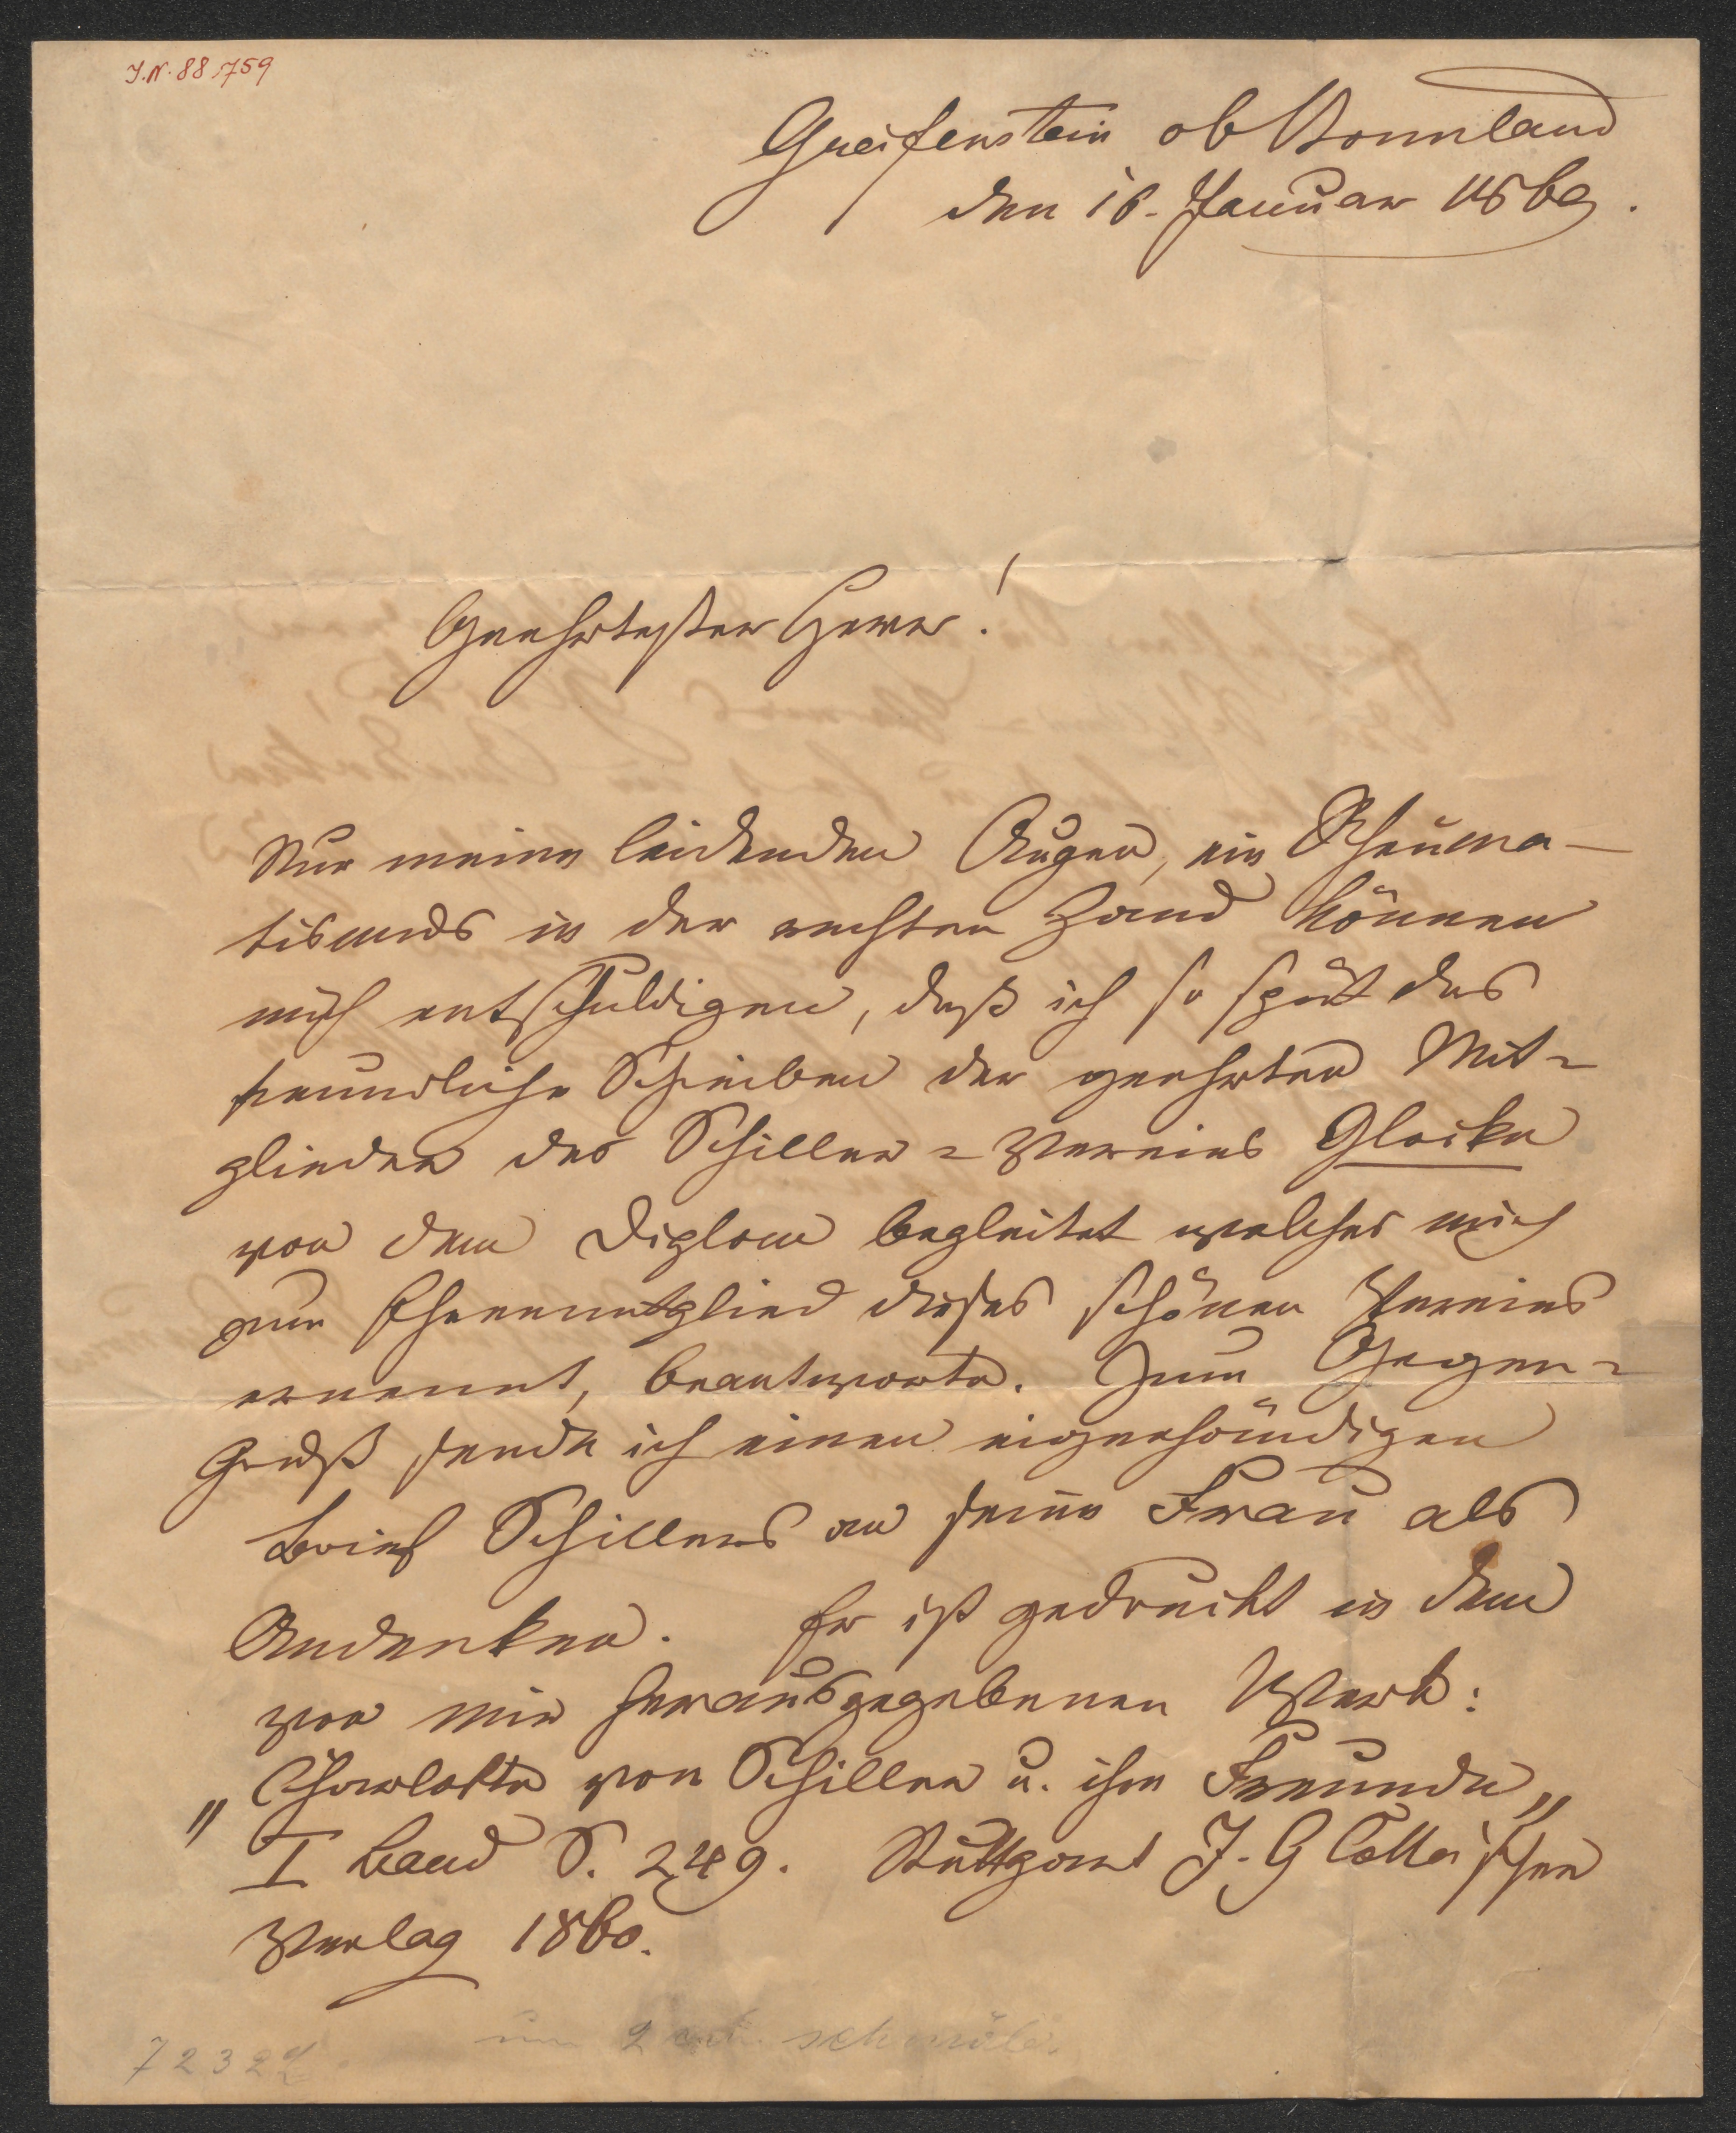 J.N. 88.759
Greifenstein ob Bonnland
den 16. Januar 1869.
Geehrtester Herr!
Nur meine leidenden Augen, ein Rheuma-
tismus in der rechten Hand können
mich entschuldigen, daß ich so spät das
freundliche Schreiben der geehrten Mit-
glieder des Schiller-Vereins Glocke
von dem Diplom begleitet welches mich
zum Ehrenmitglied dieses schönen Vereins
ernennt, beantworte. Zum Gegen-
Gruß sende ich einen eigenhändigen
Brief Schillers an seine Frau als
Andenken. Er ist gedruckt in dem
von mir herausgegebenen Werk:
„Charlotte von Schiller u. ihre Freunde„
I Band S. 249. Stuttgart J. G Cottaischer
Verlag 1860.
um 2 cm schmäler
72322